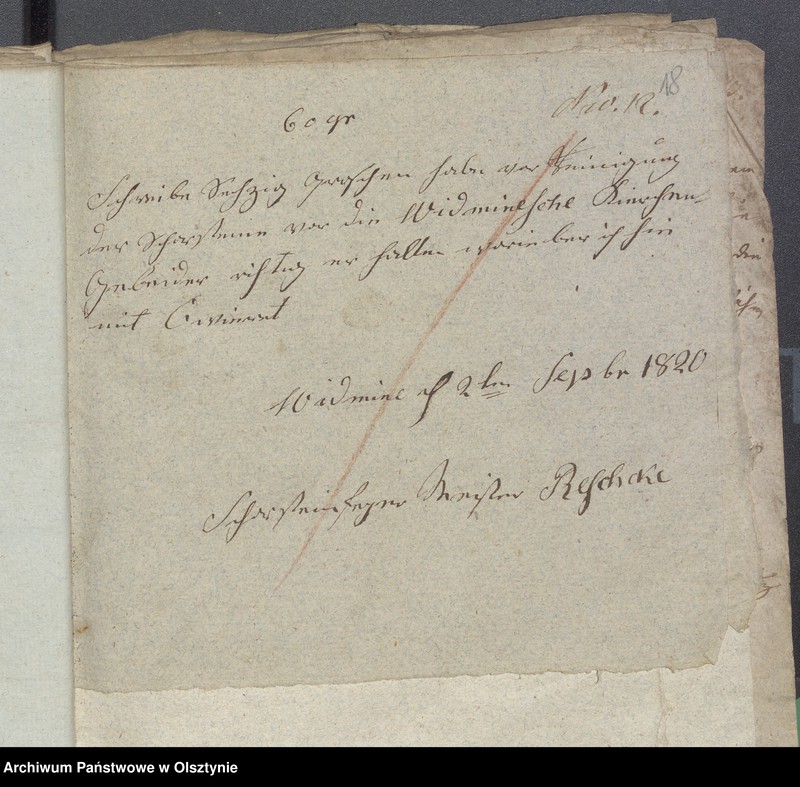 18
No. 12.
60 gr
Schreibe Sechzig Groschen habe vor Reinigung
der Schorsteine vor die Widminesche Kierchen-
Gebeider richtig er halten worieber ich hir
mit Cwierret
Widmine d 2ten Sepbr 1820
Schorsteinfeger Meister Reschcke
die
Archiwum Państwowe w Olsztynie